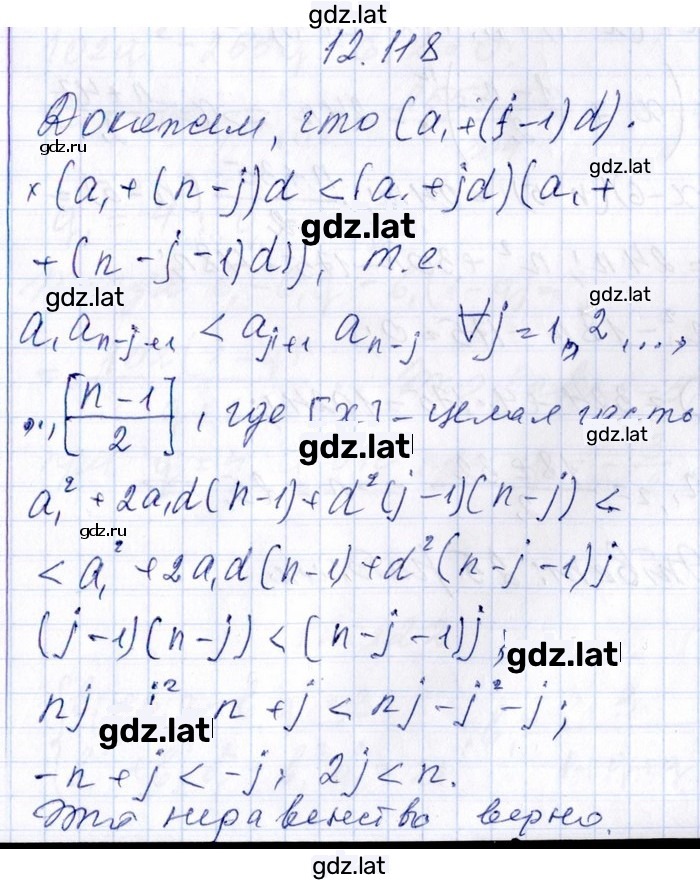 gdz.lat
12.118
Докажем, что (a₁+(j-1)d)·
gdz.ru
gdz.lat
×(a₁+(n-j)d<(a₁+jd)(a₁+
gdz.lat
+(n-j-1)d)), т.е.
gdz.lat
gdz.lat
a₁a_{n-j+1}<a_{j+1}a_{n-j} ∀j=1,2,...,
...,[(n-1)/2], где [x] - целая часть
gdz.lat
gdz.lat
a₁²+2a₁d(n-1)+d²(j-1)(n-j)<
gdz.ru
<a₁²+2a₁d(n-1)+d²(n-j-1)j
(j-1)(n-j)<(n-j-1)j;
gdz.lat
nj-j²-n+j<nj-j²-j;
gdz.lat
-n+j<-j; 2j<n.
Это неравенство верно.
gdz.lat